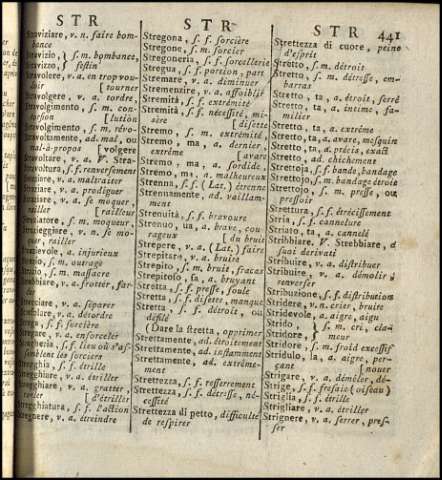 STR STR STR 441
Straviziare, v. n. faire bom-
bance
Stravizio, } s. m. bombance,
Stravizzo, } festin
Stravolere, v. a. en trop vou-
loir [tourner
Stravolgere, v. a. tordre,
Stravolgimento, s. m. con-
torsion [lution
Stravolgimento, s. m. révo-
Stravoltamente, ad. mal, ou
mal-à-propos [volgere
Stravoltare, v. a. V. Stra-
Stravoltura, s. f. renversement
Straziare, v. a. maltraiter
Straziare, v. a. prodiguer
Straziare, v. a. se moquer,
railler [railleur
Straziatore, s. m. moqueur,
Strazieggiare, v. n. se mo-
quer, railler
Strazievole, a. injurieux
Strazio, s. m. outrage
Strazio, s. m. massacre
Strebbiare, v. a. frotter, far-
der
Strecciare, v. a. séparer
Stremblare, v. a. détordre
Strega, s. f. sorcière
Stregare, v. a. ensorceller
Stregheria, s. f. lieu où s'as-
semblent les sorciers
Streghia, s. f. étrille
Stregghiare, v. a. étriller
Stregghiare, v. a. gratter
[d'étriller
Stregghiatura, s. f. l'action
Stregnere, v. a. étreindre
Stregona, s. f. sorcière
Stregone, s. m. sorcier
Stregoneria, s. f. sorcellerie
Stregua, s. f. portion, part
Stremare, v. a. diminuer
Stremenzire, v. a. affoiblir
Stremità, s. f. extrémité
Stremità, s. f. nécessité, mi-
sère [disette
Stremo, s. m. extrémité,
Stremo, ma, a. dernier,
extrême [avare
Stremo, ma, a. sordide,
Stremo, ma, a. malheureux
Strenna, s. f. (Lat.) étrenne
Strenuamente, ad. vaillam-
ment
Strenuità, s. f. bravoure
Strenuo, ua, a. brave, cou-
rageux [du bruit
Strepere, v. a. (Lat.) faire
Strepitare, v. a. bruire
Strepito, s. m. bruit, fracas
Strepitoso, sa, a. bruyant
Stretta, s. f. presse, foule
Stretta, s. f. disette, manque
Stretta, s. f. détroit, ou
défilé
(Dare la stretta, opprimer
Strettamente, ad. étroitement
Strettamente, ad. instamment
Strettamente, ad. extrême-
ment
Strettezza, s. f. resserrement
Strettezza, s. f. détresse, né-
cessité
Strettezza di petto, difficulté
de respirer
Strettezza di cuore, peine
d'esprit
Stretto, s. m. détroit
Stretto, s. m. détresse, em-
barras
Stretto, ta, a. étroit, serré
Stretto, ta, a. intime, fa-
milier
Stretto, ta, a. extrême
Stretto, ta, a. avare, mesquin
Stretto, ta, a. précis, exact
Stretto, ad. chichement
Strettoja, s. f. bande, bandage
Strettojo, s. m. bandage étroit
Strettojo, s. m. presse, ou
pressoir
Strettura, s. f. étrécissement
Stria, s. f. cannelure
Striato, ta, a. cannelé
Stribbiare, V. Strebbiare, &
suoi derivati
Stribuire, v. a. distribuer
Stribuire, v. a. démolir,
renverser
Stribuzione, s. f. distribution
Stridere, v. n. crier, bruire
Stridevole, a. aigre, aigu
Strido, } s. m. cri, cla-
Stridore, } meur
Stridore, s. m. froid excessif
Stridulo, la, a. aigre, per-
çant [nouer
Strigare, v. a. démêler, dé-
Strige, s. f. fresaie (oiseau)
Striglia, s. f. étrille
Strigliare, v. a. étriller
Strignere, v. a. serrer, pres-
ser